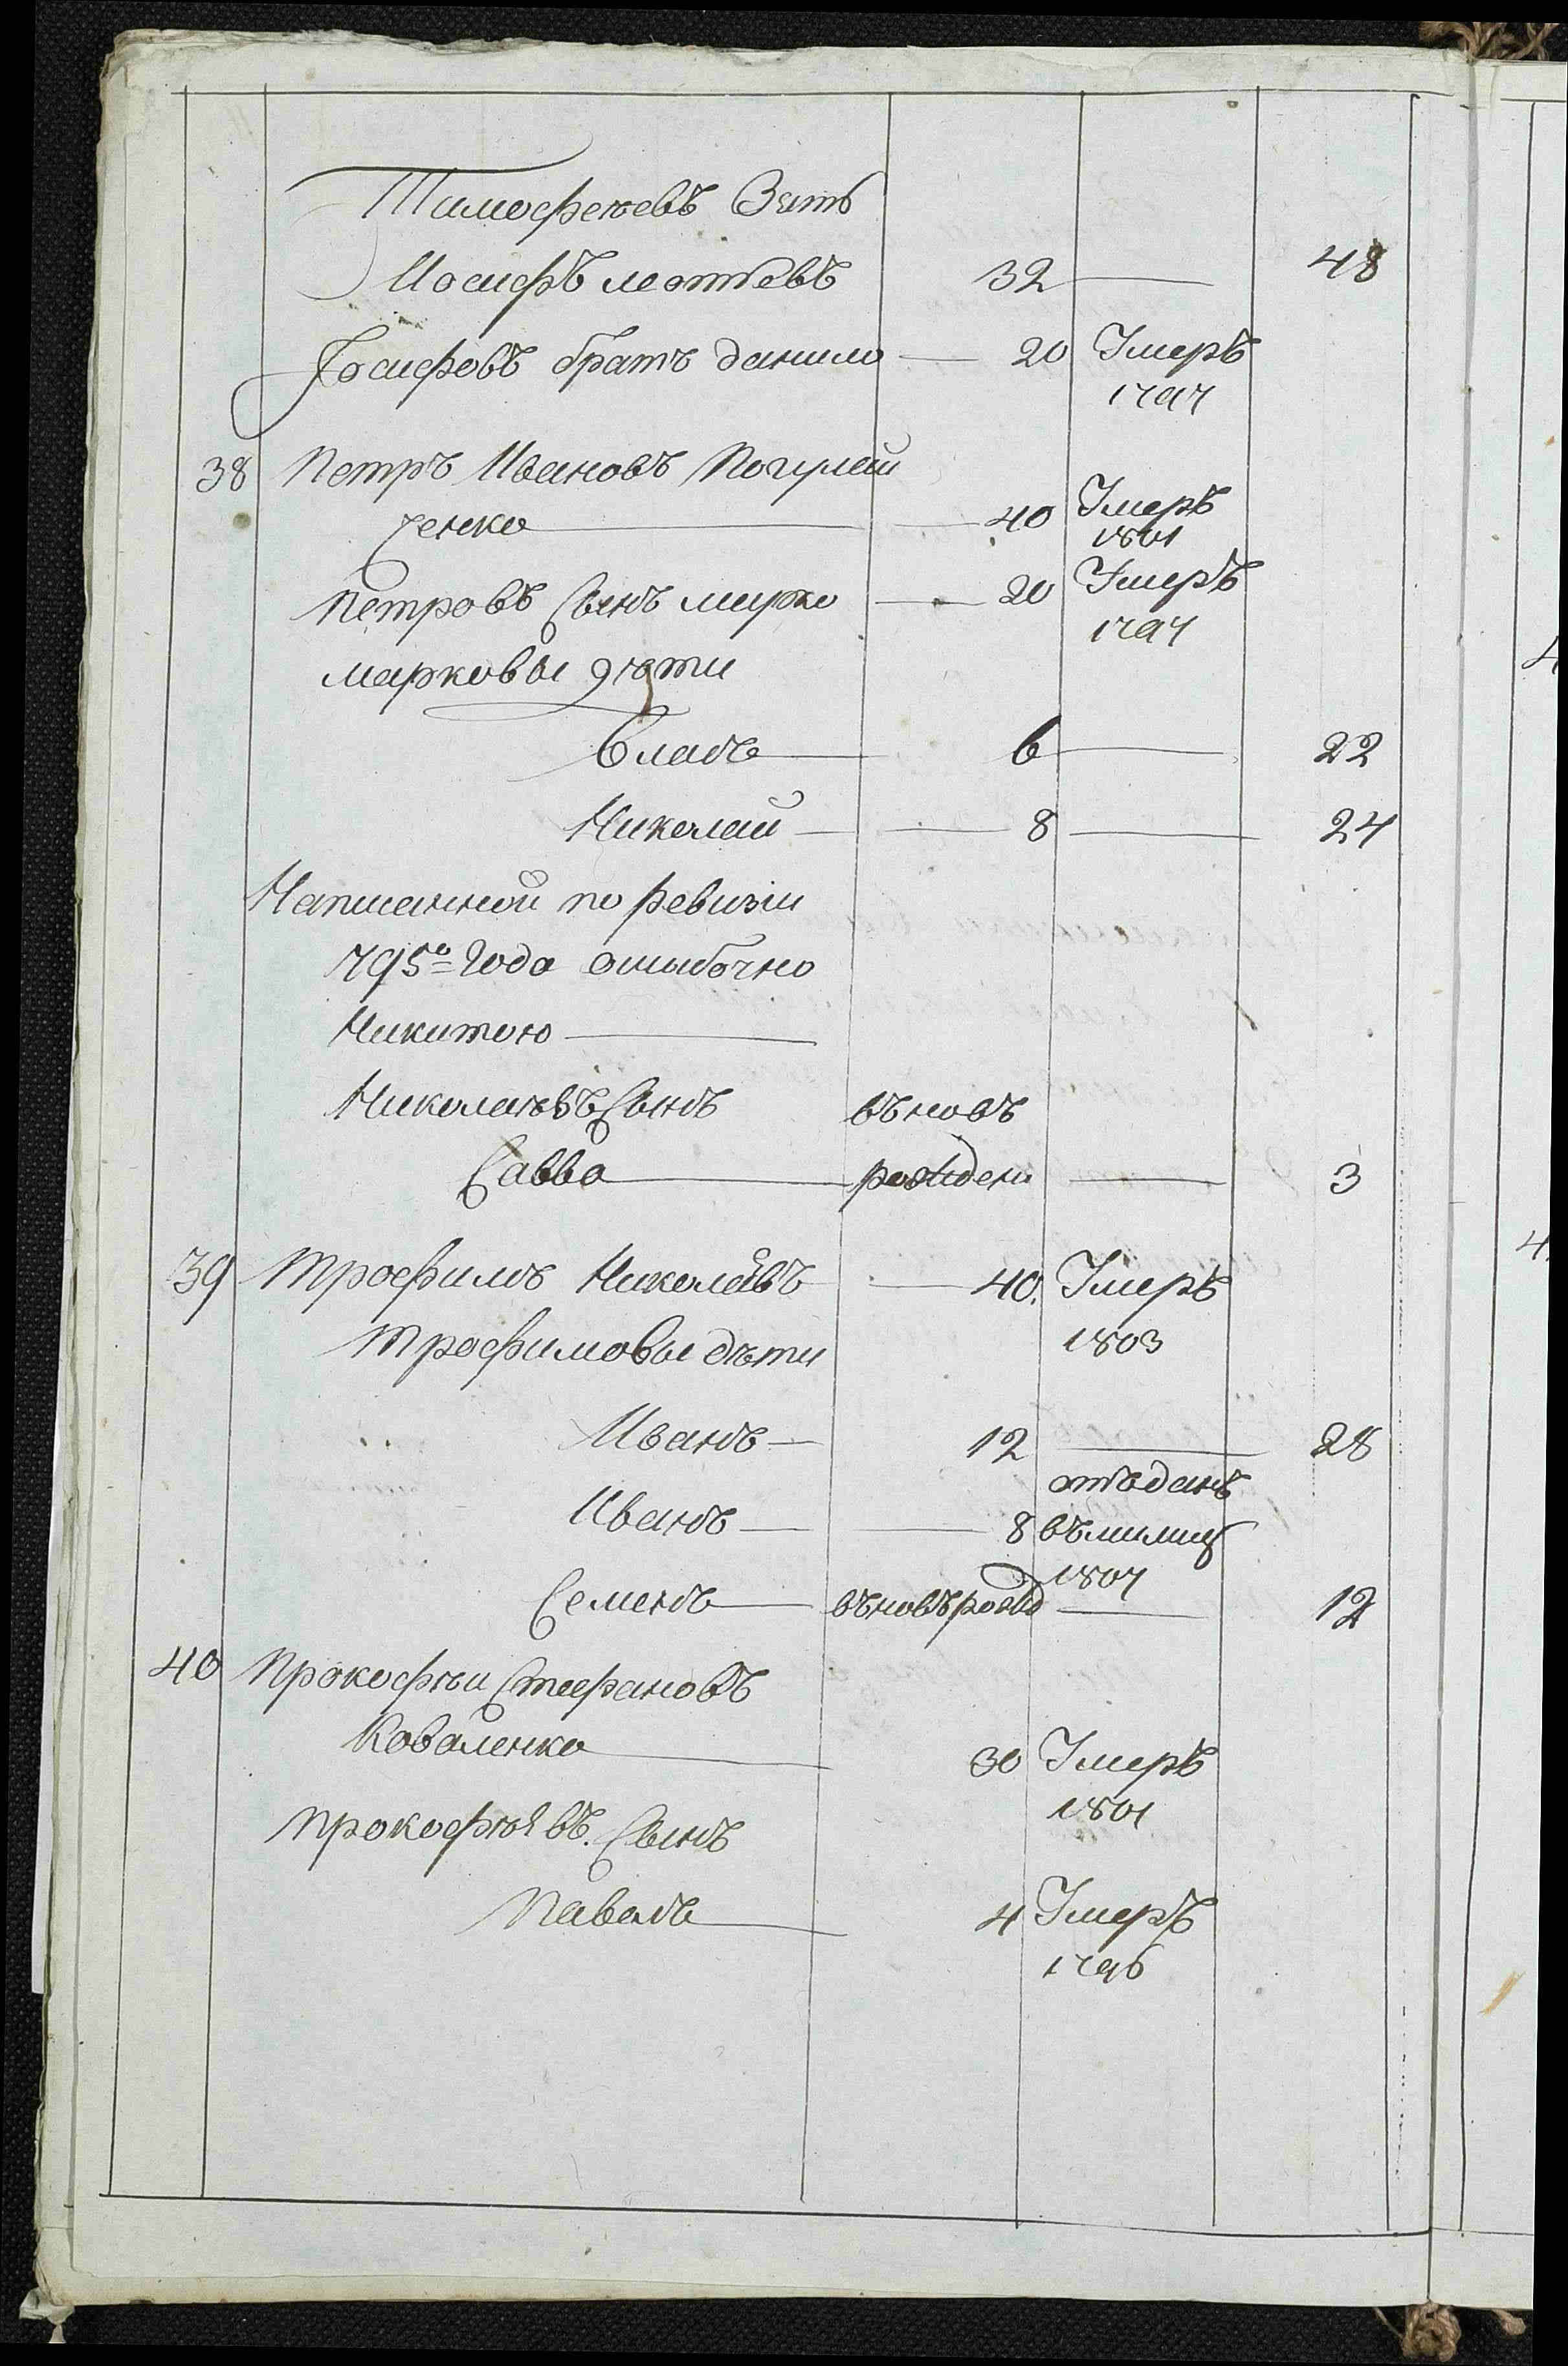 Тимофеевъ Зять
Иосифъ леонтьевъ 32 — 48
Иосифовъ братъ данило — 20 Умеръ
1797
38 Петръ Ивановъ Погулай
ченко — 40 Умеръ
1801
Петровъ Сынъ марко — 20 Умеръ
1797
марковы дѣти
Власъ — 6 — 22
Николай — 8 — 24
Написанной по ревизіи
795го Года ошыбочно
Никитою —
Николаевъ Сынъ въновь
Савва — рожденъ — 3
39 Трофимъ Николаевъ — 40. Умеръ
Трофимовы дѣти 1803
Иванъ — 12 — 28
отъданъ
Иванъ — 8 въмилиц
1807
Семенъ — въновьрожд — 12
40 Прокофѣи Стефановъ
Коваленко — 30 Умеръ
1801
Прокофѣевъ. Сынъ
Павелъ — 4 Умеръ
1796